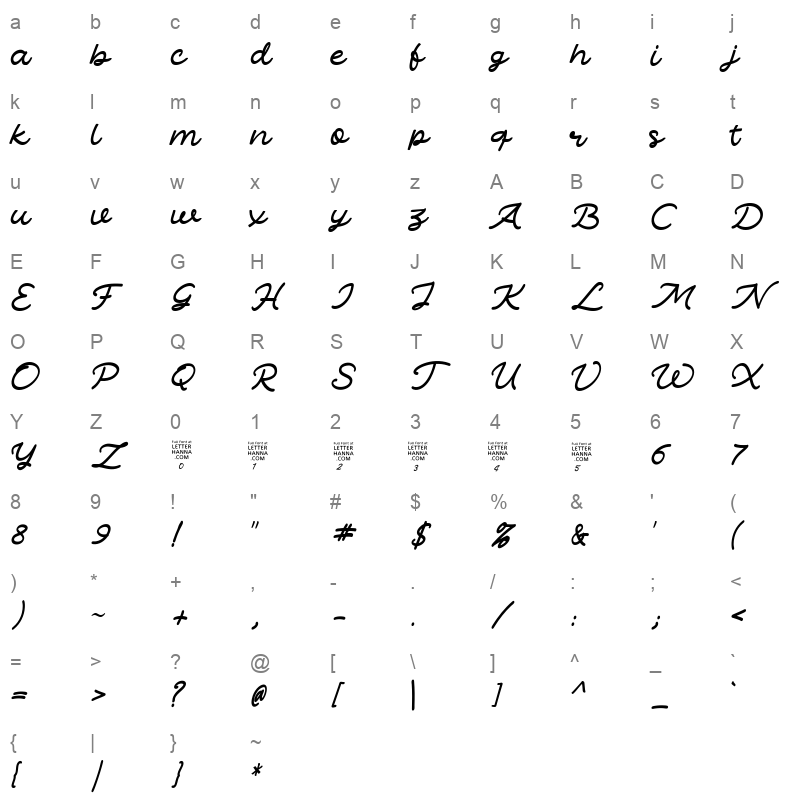 a b c d e f g h i j
a b c d e f g h i j
k l m n o p q r s t
k l m n o p q r s t
u v w x y z A B C D
u v w x y z A B C D
E F G H I J K L M N
E F G H I J K L M N
O P Q R S T U V W X
O P Q R S T U V W X
Y Z 0 1 2 3 4 5 6 7
Y Z Full Font at LETTER HANNA .COM 0 Full Font at LETTER HANNA .COM 1 Full Font at LETTER HANNA .COM 2 Full Font at LETTER HANNA .COM 3 Full Font at LETTER HANNA .COM 4 Full Font at LETTER HANNA .COM 5 6 7
8 9 ! " # $ % & ' (
8 9 ! " # $ % & ' (
) * + , - . / : ; <
) ~ + , - . / : ; <
= > ? @ [ \ ] ^ _ `
= > ? @ [ | ] ^ _ `
{ | } ~
{ | } *